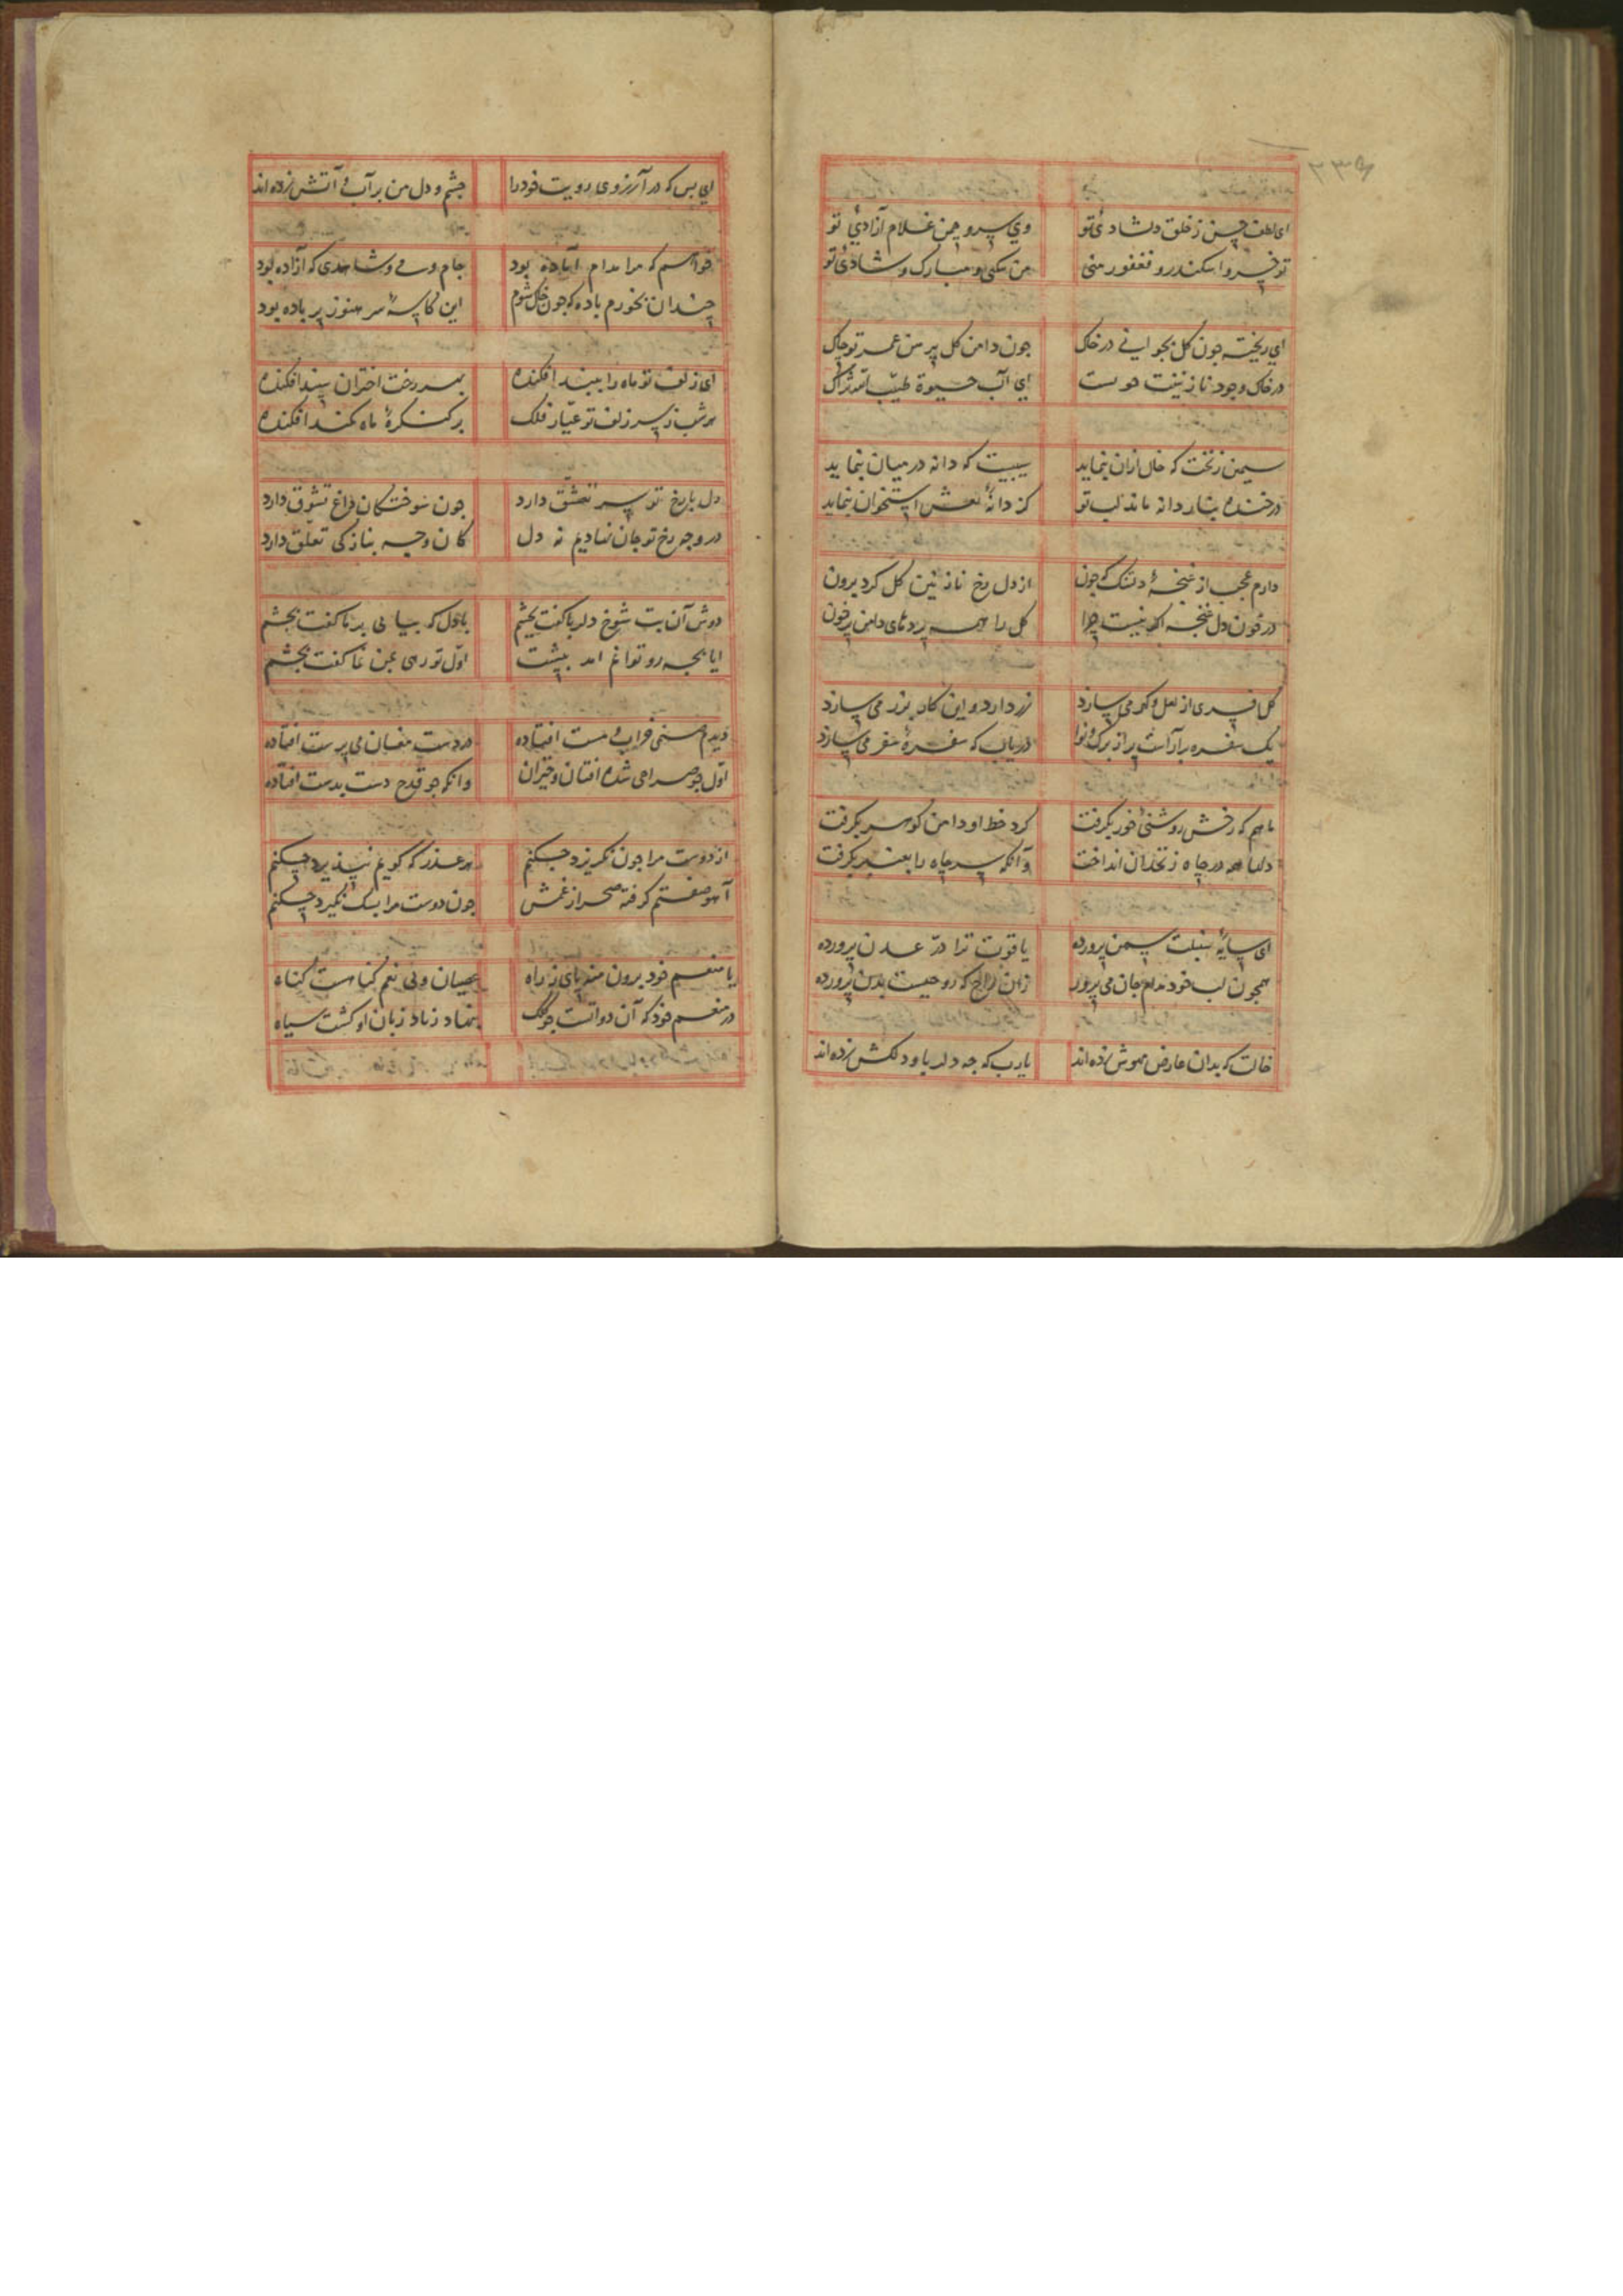 ۲۳۵
ای لطف چمن ز خلق دلشادئ تو وی سرو چمن غلام آزادئ تو
تو خسرو اسکندر و فغفور منی من سکی و مبارک و شادئ تو
ای ریخته جون کل بجوانی در خاک جون دامن کل پیرهن عمر تو چاک
در خاک وجود نازنینت هوست ای آب حیوة طیب الله ثراک
سیمین زنخت که خال ازان بنماید سیبیست که دانه در میان بنماید
در خنده بنار دانه ماند لب تو کز دانهٔ لعلش استخوان بنماید
دارم عجب از غنجهٔ دلتنک که جون از دل رخ نازنین کل کرد برون
در خون دل غنجه اکر نیست چرا کل را همه پردهای دلهن پرخون
کل قصری از لعل و کهر می سازد زر دارد و این کار بزر می سازد
یک سفره برآراست پر از برک و نوا دریاب که سفرهٔ سفر می سازد
ماهم که رخش روشنئ خور بکرفت کرد خط او دامن کوسر بکرفت
دلها همه در چاه زنخدان انداخت وآنکه سر چاه را بعنبر بکرفت
ای سایهٔ سنبلت سمن پرورده یاقوت ترا درّ عدن پرورده
همچون لب خود مدام جان می پرور زان راح که روحیست بدن پرورده
خالت که بدان عارض مهوش زده اند یارب که جه دلربا و دلکش زده اند
ای بس که در آرزوی رویت خود را جشم و دل من بر آب و آتش زده اند
خواهم که مرا مدام آماده بود جام و می و شاهدی که آزاده بود
چندان بخورم باده که جون خاک شوم این کاسهٔ سر هنوز پر باده بود
ای زلف تو ماه را ببند افکنده بهر رخت اختران سپند افکنده
هر شب ز سر زلف تو عیار فلک بر کنکرهٔ ماه کمند افکنده
دل با رخ تو سر تعشق دارد جون سوختکان داغ تشوق دارد
در وجه رخ تو جان نهادیم نه دل کان وجه بنازکی تعلق دارد
دوش آن بت شوخ دلربا کفت بجشم
اول تو
دیدم صنمی خراب و مست افتاده در دست مغان می پرست افتاده
اول جو صراحی شده افتان و خیزان وانکه جو قدح دست بدست افتاده
از دوست مرا جون نکریزد جکنم هر عذر که کویم نپذیرد چکنم
آهو صفتم کرفته صحرا از غمش جون دوست مرا بسک نکیرد چکنم
با منعم خود برون منه پای ز راه عصیان ولی نعم کناهست کناه
در منعم خود که آن دواتست جو کلک بنهاد زبان او کشت سیاه